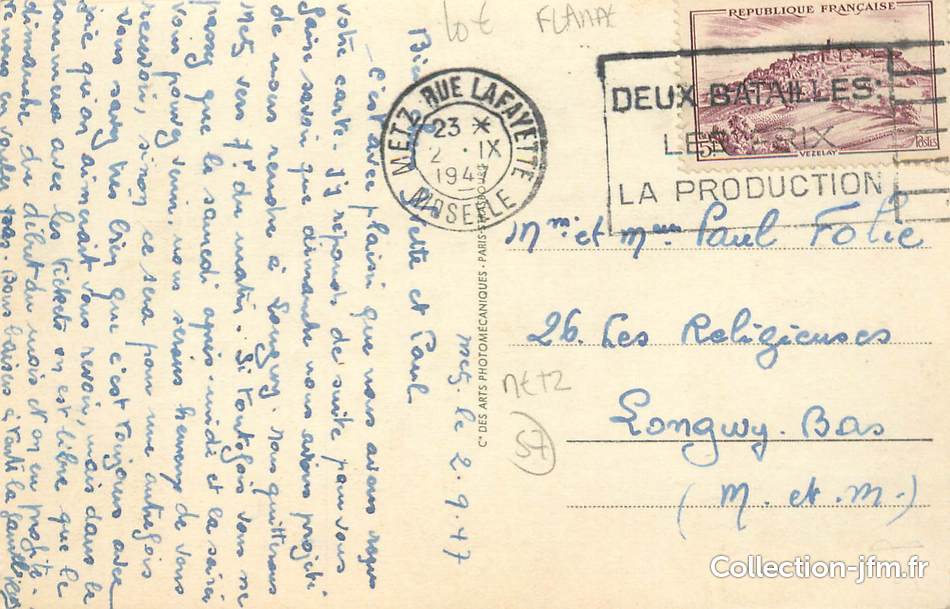 lot FLAMME
REPUBLIQUE FRANÇAISE
5F
Postes
VEZELAY
METZ-RUE LAFAYETTE
23 *
2 - IX
194
MOSELLE
DEUX BATAILLES:
LES PRIX
LA PRODUCTION
Mme et Mr Paul Folie
26. Les Religieuses
Longwy-Bas
(M. et. M.)
METZ
57
Cie DES ARTS PHOTOMÉCANIQUES - PARIS-STRASBOURG
Metz, le 2.9.47
Bien chers et Paul
C'est avec plaisir que nous avons reçu
votre carte. J'y réponds de suite pour vous
faire savoir que dimanche nous avions projeté
de nous rendre à Longwy. Nous quitterons
Metz vers 7h du matin. Si toutefois vous ne
pensez que le samedi après-midi et la soirée
vous pouvez venir, nous serions heureux de vous
recevoir, sinon ce sera pour une autre fois
Vous savez très bien que c'est toujours avec
joie qu'on aimerait vous revoir, mais dans le
commerce avec les tickets on est libre que le
dimanche du début du mois et on en profite.
Bons baisers à toute la famille